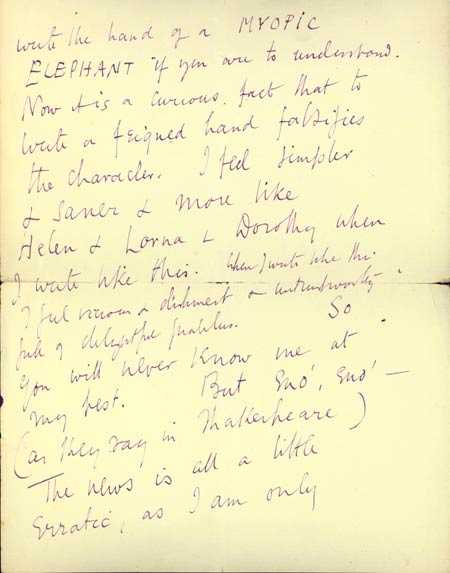 write the hand of a MYOPIC
ELEPHANT if you are to understand.
Now it is a curious fact that to
write a feigned hand falsifies
the character. I feel simpler
& saner & more like
Helen & Lorna & Dorothy when
I write like this. When I write like this
I feel vicious & dishonest & untrustworthy &
full of delightful So
you will never know me at
my best. But Eno', Eno' —
(as they say in Shakespeare)
The news is all a little
erratic, as I am only